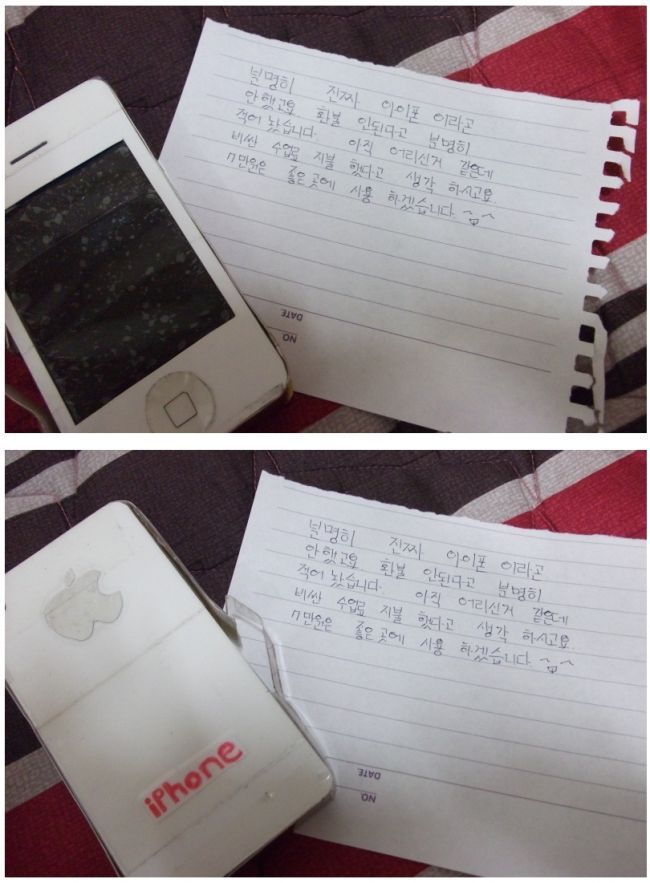 분명히 진짜 아이폰 이라고
안했고요 환불 안된다고 분명히
적어 놨습니다. 아직 어리신거 같은데
비싼 수업료 지불 했다고 생각 하시고요.
7만원은 좋은곳에 사용 하겠습니다 ^ㅁ^
DATE
NO.
분명히 진짜 아이폰 이라고
안했고요 환불 안된다고 분명히
적어 놨습니다. 아직 어리신거 같은데
비싼 수업료 지불 했다고 생각 하시고요.
7만원은 좋은곳에 사용 하겠습니다 ^ㅁ^
iPhone
DATE
NO.